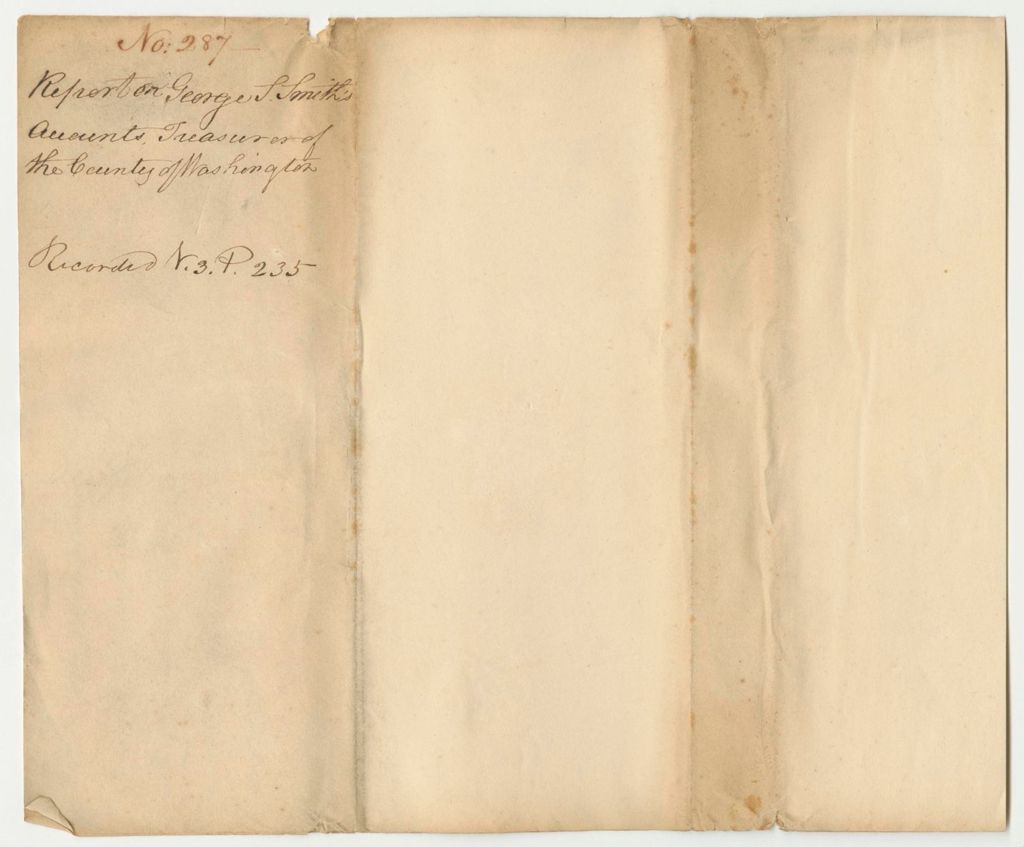 No: 287
Report on George S. Smith's
Accounts, Treasurer of
the County of Washington
Recorded V. 3. P. 235